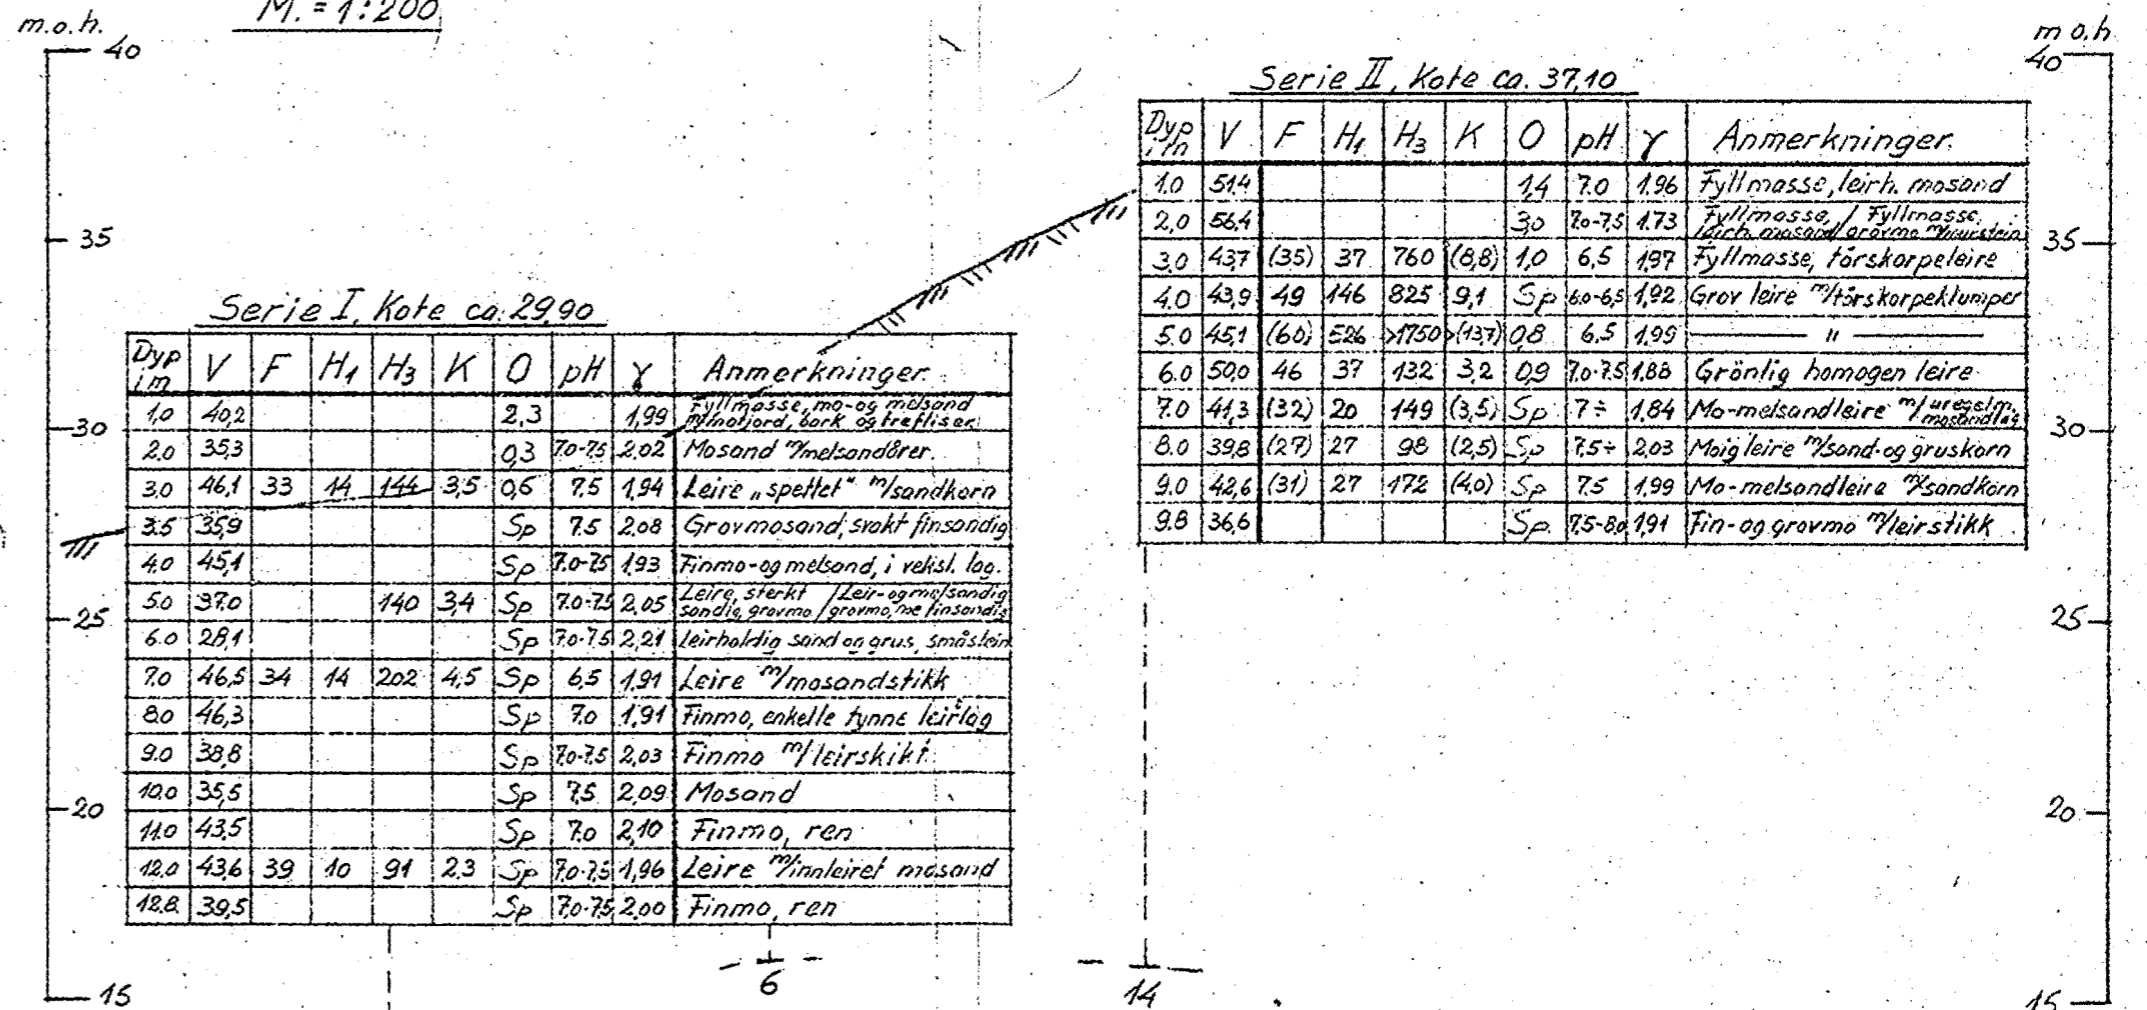 M. = 1:200
m.o.h.
40
35
30
25
20
15
Serie I, Kote ca. 29,90
Dyp i m V F H1 H3 K O pH γ Anmerkninger.
1,0 40,2 2.3 1,99 Fyllmasse, mo- og melsand
m/matjord, bark og trefliser
2.0 35,3 0,3 7.0-7.5 2,02 Mosand m/melsandårer.
3,0 46,1 33 14 144 3,5 0,6 7.5 1,94 Leire „spettet" m/sandkorn
3.5 35,9 Sp 7.5 2.08 Grovmosand, svakt finsandig
4.0 45,1 Sp 7.0-7.5 1.93 Finmo- og melsand, i veksl. lag.
5.0 37.0 140 3,4 Sp 7.0-7.5 2,05 Leire, sterkt / Leir- og melsandig
sandig, grovmo / grovmo, finsandig
6.0 28,1 Sp 7.0-7.5 2,21 Leirholdig sand og grus, småstein
7.0 46,5 34 14 202 4,5 Sp 6,5 1,91 Leire m/mosandstikk
8.0 46,3 Sp 7.0 1,91 Finmo, enkelte tynne leirlag
9.0 38,8 Sp 7.0-7.5 2,03 Finmo m/leirskikt.
10.0 35,5 Sp 7,5 2,09 Mosand
11.0 43,5 Sp 7.0 2,10 Finmo, ren
12.0 43,6 39 10 91 2.3 Sp 7.0-7.5 1,96 Leire m/innleiret mosand
12.8 39,5 Sp 7.0-7.5 2.00 Finmo, ren
6
Serie II, Kote ca. 37,10
Dyp i m V F H1 H3 K O pH γ Anmerkninger.
1.0 51,4 1,4 7.0 1.96 Fyllmasse, leirh. mosand
2,0 56,4 3,0 7.0-7,5 1.73 Fyllmasse, / Fyllmasse,
leirh. mosand / grovmo
3.0 43,7 (35) 37 760 (8,8) 1,0 6,5 1,97 Fyllmasse, tørskorpeleire
4.0 43,9 49 146 825 9,1 Sp 6.0-6,5 1,92 Grov leire m/tørskorpeklumper
5.0 45,1 (60) 526 >1750 >(13,7) 0,8 6.5 1,99 — " —
6.0 50,0 46 37 132 3,2 0,9 7.0-7.5 1,88 Grönlig homogen leire
7.0 41,3 (32) 20 149 (3,5) Sp 7÷ 1,84 Mo-melsandleire m/uregelm.
mosandlag
8.0 39,8 (27) 27 98 (2,5) Sp 7,5÷ 2,03 Moig leire m/sand- og gruskorn
9.0 42,6 (31) 27 172 (4,0) Sp 7.5 1,99 Mo-melsandleire m/sandkorn
9.8 36,6 Sp. 7,5-8,0 1,91 Fin- og grovmo m/leirstikk
14
m o.h
40
35
30
25
20
15